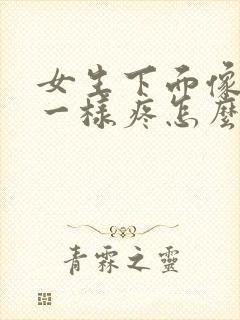 女生下面像
一样疼怎麼
青霖之靈